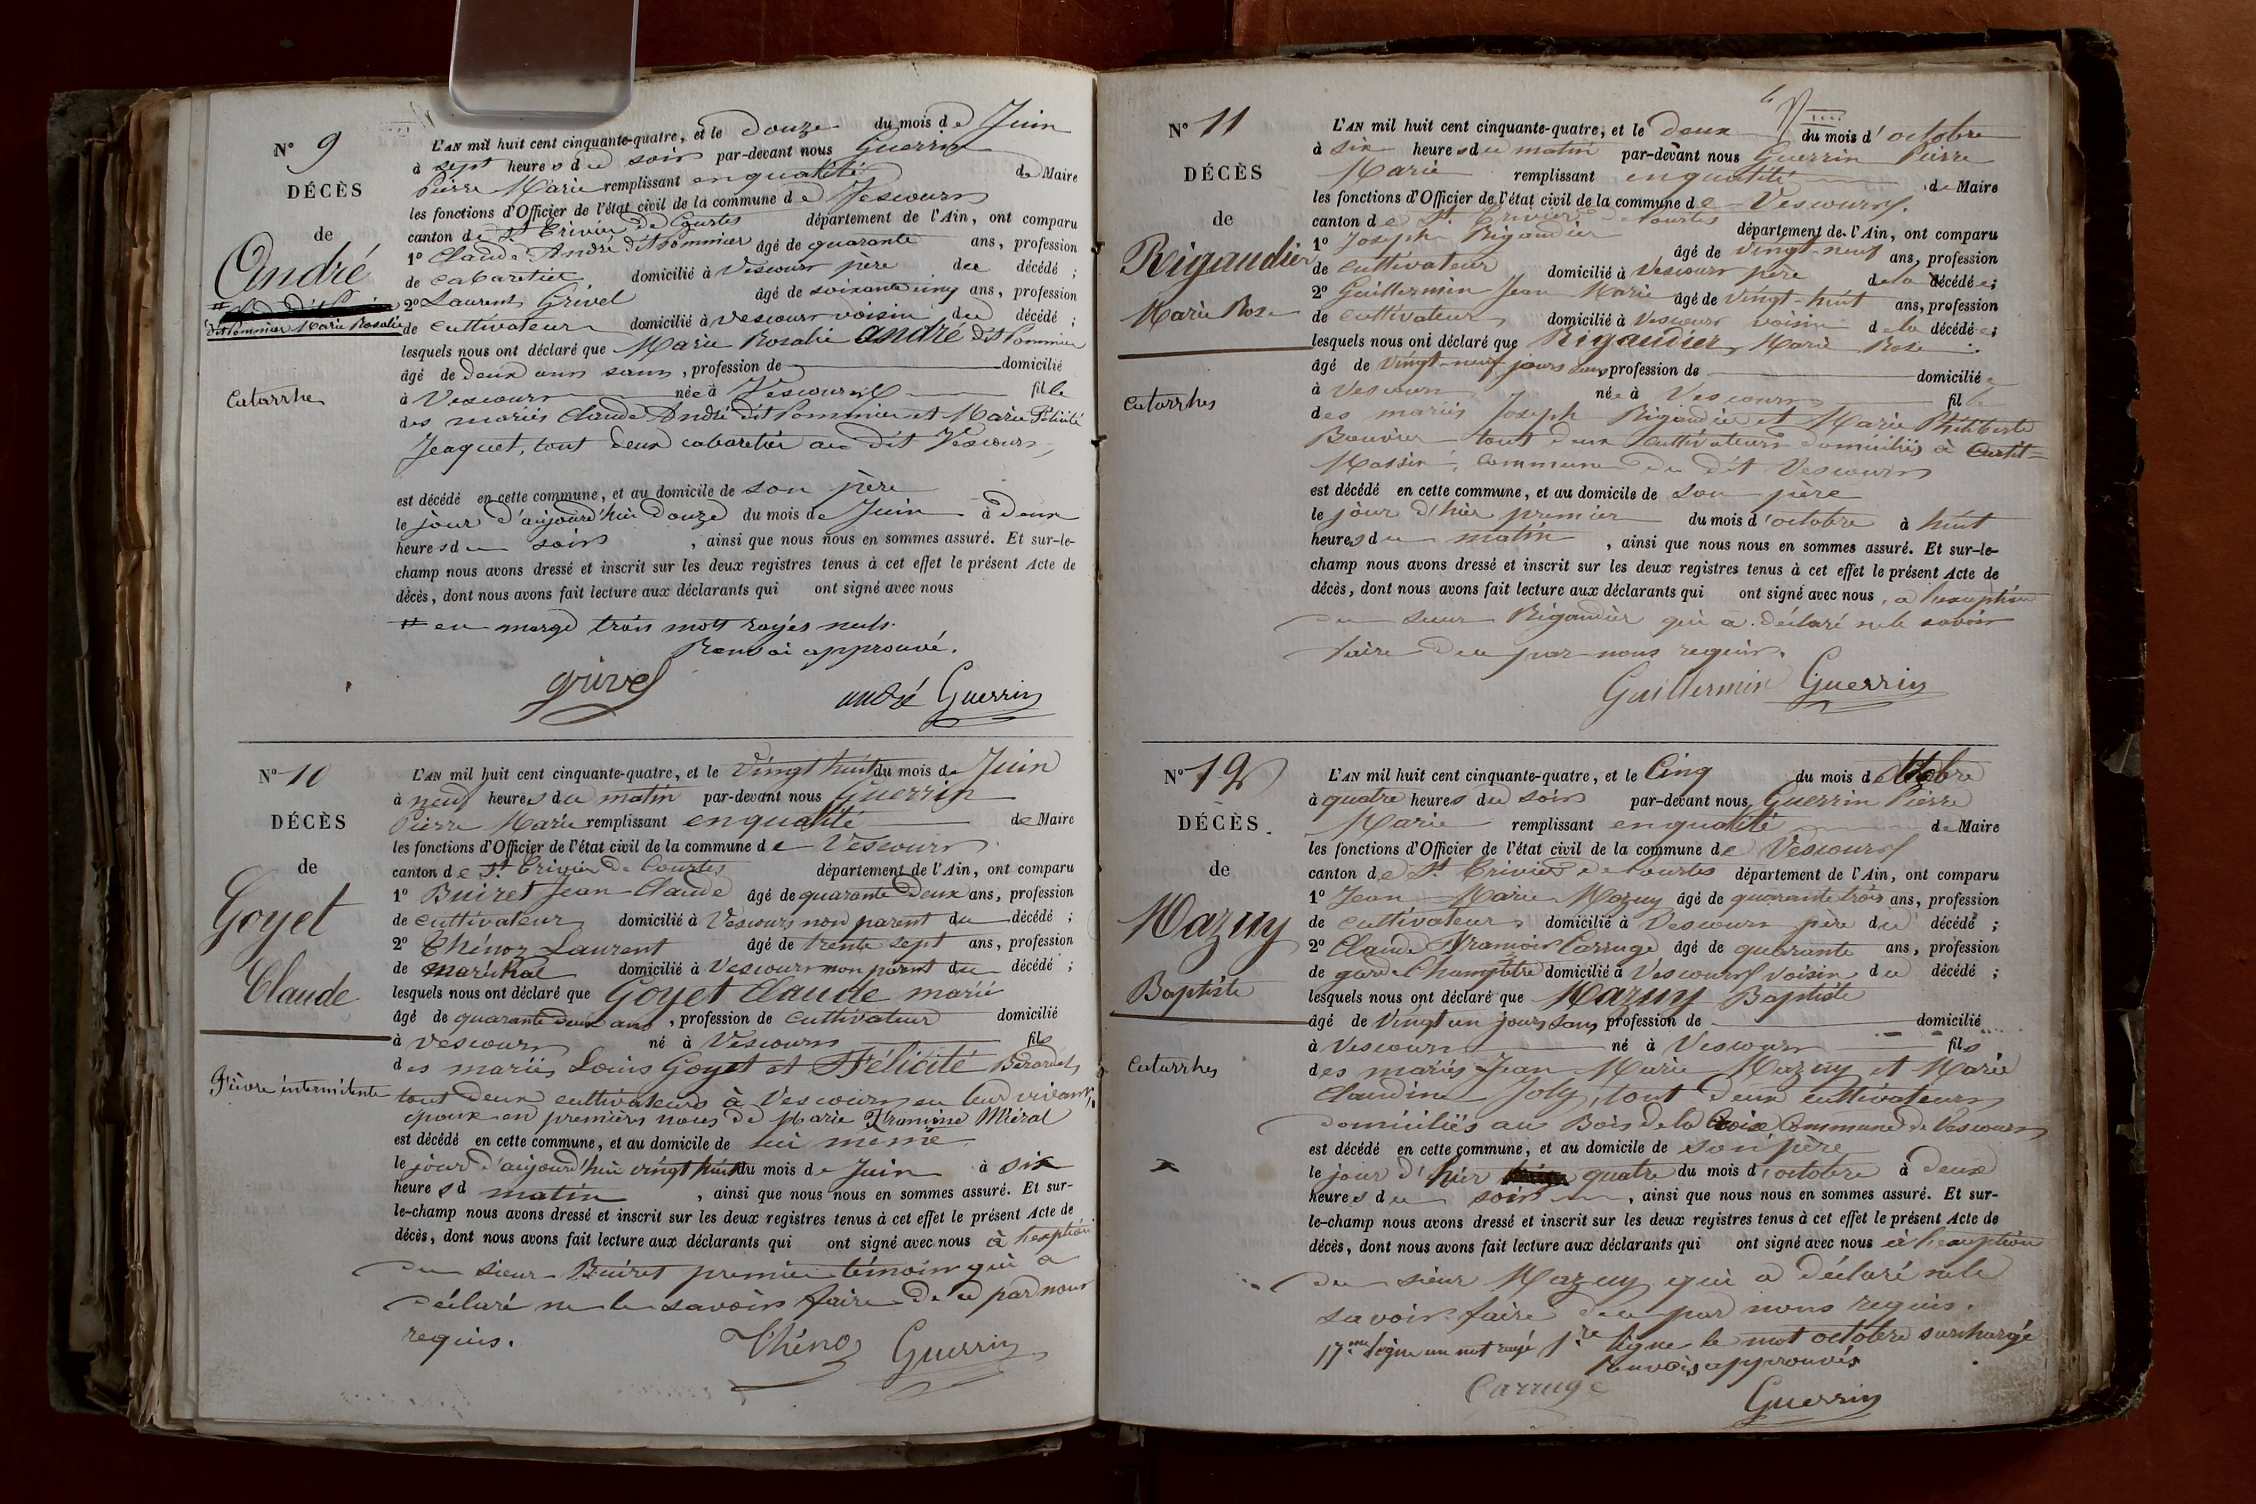 N° 9
DÉCÈS
de
André
dit Pommier Marie Rosalie
Catarrhe
L'AN mil huit cent cinquante-quatre, et le douze du mois de Juin
à sept heures du soir par-devant nous Guerrin
Pierre Marie remplissant en qualité de Maire
les fonctions d'Officier de l'état civil de la commune de Vescours
canton de St Trivier de Courtes département de l'Ain, ont comparu
1° Claude André dit Pommier âgé de quarante ans, profession
de cabaretier domicilié à Vescours père du décédé ;
2° Laurent Grivel âgé de soixante cinq ans, profession
de cultivateur domicilié à Vescours voisin du décédé ;
lesquels nous ont déclaré que Marie Rosalie André dit Pommier
âgé de deux ans sans, profession de domicilié
à Vescours née à Vescours fille
des mariés Claude André dit Pommier et Marie Félicité
Jeaquet, tout deux cabaretier au dit Vescours
est décédé en cette commune, et au domicile de son père
le jour d'aujourd'hui douze du mois de Juin à deux
heures du soir, ainsi que nous nous en sommes assuré. Et sur-le-
champ nous avons dressé et inscrit sur les deux registres tenus à cet effet le présent Acte de
décès, dont nous avons fait lecture aux déclarants qui ont signé avec nous
# en marge trois mots rayés nuls.
Renvoi approuvé.
grivel
andré Guerrin
N° 10
DÉCÈS
de
Goyet
Claude
Fièvre intermitente
L'AN mil huit cent cinquante-quatre, et le vingt huit du mois de Juin
à neuf heures du matin par-devant nous Guerrin
Pierre Marie remplissant en qualité de Maire
les fonctions d'Officier de l'état civil de la commune de Vescours
canton de St Trivier de Courtes département de l'Ain, ont comparu
1° Buiret Jean-Claude âgé de quarante deux ans, profession
de cultivateur domicilié à Vescours non parent du décédé ;
2° Thénoz Laurent âgé de trente sept ans, profession
de maréchal domicilié à Vescours non parent du décédé ;
lesquels nous ont déclaré que Goyet Claude marié
âgé de quarante deux ans, profession de cultivateur domicilié
à Vescours né à Vescours fils
des mariés Louis Goyet et Félicité
tout deux cultivateurs à Vescours en leur vivant,
époux en premiers noces de Marie Françoise Miéral
est décédé en cette commune, et au domicile de lui même
le jour d'aujourd'hui vingt huit du mois de Juin à six
heures d matin, ainsi que nous nous en sommes assuré. Et sur-
le-champ nous avons dressé et inscrit sur les deux registres tenus à cet effet le présent Acte de
décès, dont nous avons fait lecture aux déclarants qui ont signé avec nous à l'exeption
du sieur Buiret premier témoin qui a
déclaré ne le savoir faire de ce par nous
requis.
Thénoz Guerrin
N° 11
DÉCÈS
de
Rigaudier
Marie Rose
Catarrhes
L'AN mil huit cent cinquante-quatre, et le deux du mois d'octobre
à six heures du matin par-devant nous Guerrin Pierre
Marie remplissant en qualité de Maire
les fonctions d'Officier de l'état civil de la commune de Vescours.
canton de St Trivier de Courtes département de l'Ain, ont comparu
1° Joseph Rigaudier âgé de vingt-neuf ans, profession
de cultivateur domicilié à Vescours père de la décédée ;
2° Guillermin Jean Marie âgé de vingt-huit ans, profession
de cultivateur domicilié à Vescours voisin de la décédée ;
lesquels nous ont déclaré que Rigaudier Marie Rose
âgé de vingt-neuf jours sans profession de domicilié
à Vescours née à Vescours fil
des mariés Joseph Rigaudier et Marie Philiberte
Bouvier tout deux cultivateurs domiciliés à Curtit=
Massin, commune du dit Vescours
est décédé en cette commune, et au domicile de son père
le jour d'hier premier du mois d'octobre à huit
heures du matin, ainsi que nous nous en sommes assuré. Et sur-le-
champ nous avons dressé et inscrit sur les deux registres tenus à cet effet le présent Acte de
décès, dont nous avons fait lecture aux déclarants qui ont signé avec nous, à l'exception
du sieur Rigaudier qui a déclaré ne le savoir
faire de ce par nous requis.
Guillermin Guerrin
N° 12
DÉCÈS
de
Mazuy
Baptiste
Catarrhes
L'AN mil huit cent cinquante-quatre, et le cinq du mois d octobre
à quatre heures du soir par-devant nous Guerrin Pierre
Marie remplissant en qualité de Maire
les fonctions d'Officier de l'état civil de la commune de Vescours
canton de St Trivier de Courtes département de l'Ain, ont comparu
1° Jean Marie Mazuy âgé de quarante trois ans, profession
de cultivateur domicilié à Vescours père du décédé ;
2° Claude François Carruge âgé de quarante ans, profession
de garde champêtre domicilié à Vescours voisin du décédé ;
lesquels nous ont déclaré que Mazuy Baptiste
âgé de vingt un jours sans profession de domicilié
à Vescours né à Vescours fils
des mariés Jean Marie Mazuy et Marie
Claudine Joly, tout deux cultivateurs
domiciliés au Bois de la Croix Commune de Vescours
est décédé en cette commune, et au domicile de son père
le jour d'hier quatre du mois d'octobre à deux
heures du soir, ainsi que nous nous en sommes assuré. Et sur-
le-champ nous avons dressé et inscrit sur les deux registres tenus à cet effet le présent Acte de
décès, dont nous avons fait lecture aux déclarants qui ont signé avec nous à l'exception
du sieur Mazuy qui a déclaré ne le
savoir faire de ce par nous requis.
17me ligne un mot rayé 1re ligne le mot octobre surchargé
Renvois approuvés
Carruge
Guerrin